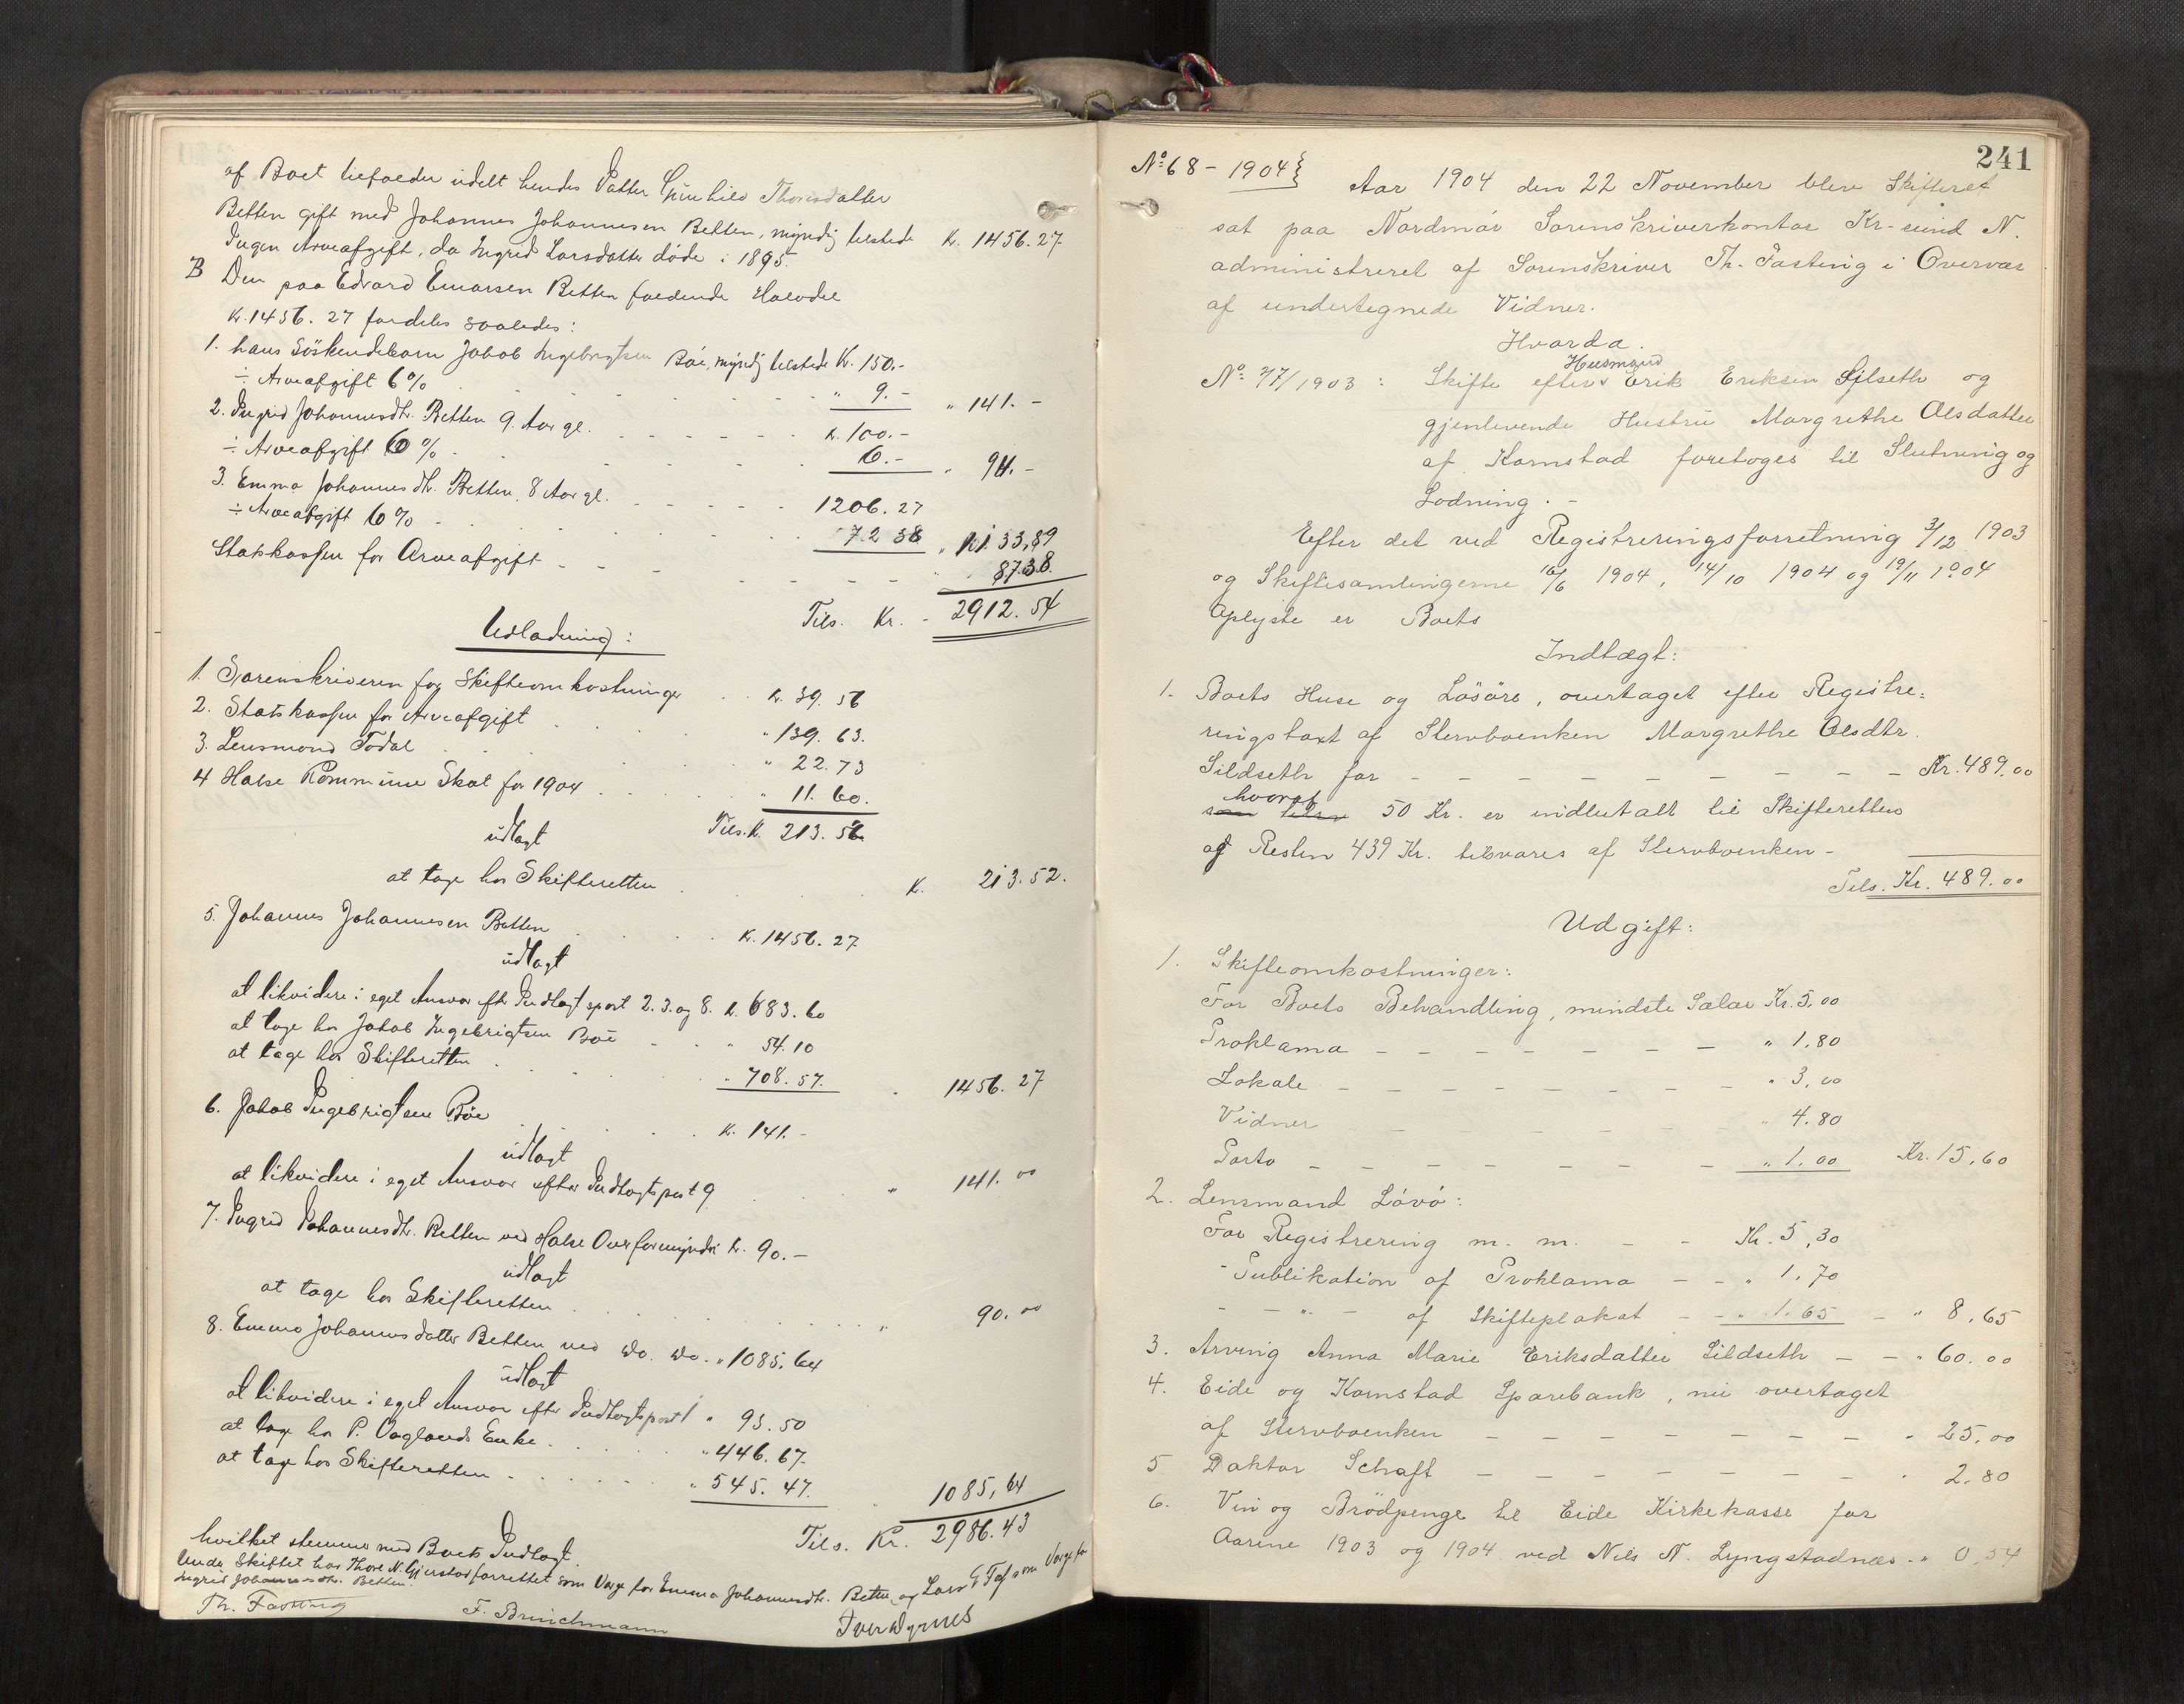 af Boet tilfalder udelt hendes Datter Gunhild Thoresdatter
Betten gift med Johannes Johannesen Betten, myndig tilstede Kr. 1456.27
Ingen Arveafgift, da Ingrid Larsdatter døde i 1895.
B Den paa Edvard Einarsen Betten faldende Halvdel
Kr. 1456.27 fordeles saaledes:
1. hans Söskendebarn Jakob Ingebrigtsen Böe, myndig tilstede Kr. 150.-
÷ Arveafgift 6% " 9.- " 141.-
2. Ingrid Johannesdtr. Betten 9 Aar gl. K. 100.-
÷ Arveafgift 6% 6.- " 94.-
3. Emma Johannesdtr. Betten 8 Aar gl. 1206.27
÷ Arveafgift 6% 72 38 " 1133,89
Statskassen for Arveafgift - - - 87.38.
Tils. Kr. 2912.54
Udlodning:
1. Sorenskriveren for Skifteomkostninger K. 39.56
2. Statskassen for Arveafgift " 139.63.
3. Lensmand Todal " 22.73
4 Halse Kommune Skat for 1904 " 11.60.
udlagt Tils. K. 213.52
at tage hos Skifteretten K. 213.52.
5. Johannes Johannesen Betten K. 1456.27
udlagt
at likvidere i eget Ansvar efter Indtægtspost 2.3. og 8. K. 683.60
at tage hos Jakob Ingebrigtsen Böe " 54.10
at tage hos Skifteretten " 708.57. " 1456.27
6. Jakob Ingebrigtsen Böe K. 141.-
udlagt
at likvidere i eget Ansvar efter Indtægtspost 9 " 141.00
7. Ingrid Johannesdtr. Betten ved Halse Overformynderi K. 90.-
udlagt
at tage hos Skifteretten " 90.00
8. Emma Johannesdatter Betten ved do. do. " 1085,64
udlagt
at likvidere i eget Ansvar efter Indtægtspost 1 " 93.50
at tage hos P. Vaglands Enke " 446.67.
at tage hos Skifteretten " 545.47. 1085,64
Tils. Kr. 2986.43
hvilket stemmer med Boets Indtægt.
Under Skiftet har Thore N. Gjerstad forrettet som Verge for Emma Johannesdtr. Betten og Lars E Tof som Verge for
Ingrid Johannesdtr. Betten.
Th. Fasting F. Brinchmann Iver Dyrnes
241
No 68 - 1904} Aar 1904 den 22 November blev Skifteret
sat paa Nordmör Sorenskriverkontor Kr-sund N.
administreret af Sorenskriver Th. Fasting i Overvær
af undertegnede Vidner.
Hvorda.
Husmand
No 27/1903: Skifte efter v Erik Eriksen Silseth og
gjenlevende Hustru Margrethe Olsdatter
af Kornstad foretoges til Slutning og
Lodning. -
Efter det ved Registreringsforretning 3/12 1903
og Skiftesamlingerne 16/6 1904, 14/10 1904 og 19/11 1904
Oplyste er Boets
Indtægt:
1. Boets Huse og Lösöre, overtaget efter Registre=
ringstaxt af Stervboenken Margrethe Olsdtr.
Sildseth for - - - - - - - - - Kr. 489.00
hvoraf
50 Kr. er indbetalt til Skifteretten
og Resten 439 Kr. tilsvares af Stervboenken -
Tils. Kr. 489.00
Udgift:
1. Skifteomkostninger:
For Boets Behandling, mindste Salær Kr. 5.00
Proklama - - - - - - - " 1.80
Lokale - - - - - - - - " 3,00
Vidner - - - - - " 4.80
Porto - - - - - - - " 1.00 Kr. 15,60
2. Lensmand Lövö:
For Registrering m. m. - - Kr. 5,30
- Publikation af Proklama - - " 1.70
- - " - af Skifteplakat - - " 1.65 - " 8,65
3. Arving Anna Marie Eriksdatter Sildseth - - " 60.00
4. Eide og Kornstad Sparebank, nu overtaget
af Stervboenken - - - - - - - " 25.00
5 Doktor Schaft - - - - - - - " 2.80
6. Vin og Brödpenge til Eide Kirkekasse for
Aarene 1903 og 1904 ved Nils N. Lyngstadnæs - " 0,54